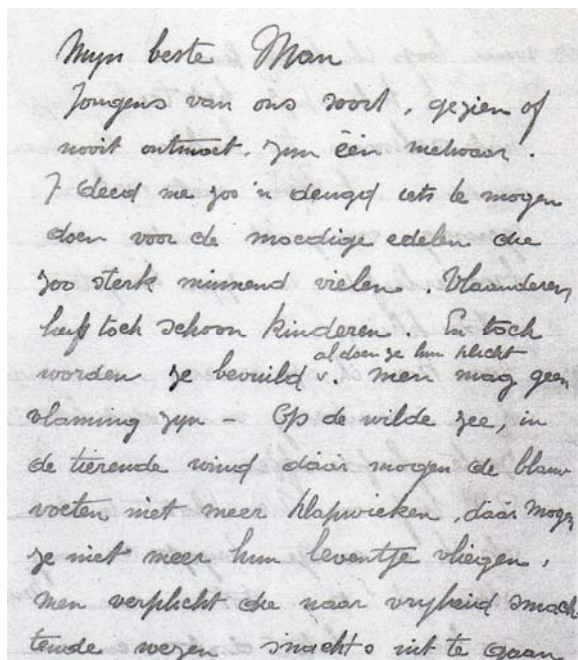 Mijn beste Man
Jongens van ons soort, gezien of
nooit ontmoet, zijn één nietwaar.
't deed me zoo 'n deugd iets te mogen
doen voor de moedige edelen die
zoo sterk minnend vielen. Vlaanderen
heeft toch schoon kinderen. En toch
al doen ze hun plicht
worden ze bevuild v. men mag geen
vlaming zijn – Op de wilde zee, in
de tierende wind dáár mogen de blauw
voeten niet meer klapwieken, dáár mogen
ze niet meer hun leventje vliegen,
men verplicht die naar vrijheid smach
tende wezen snachts uit te gaan